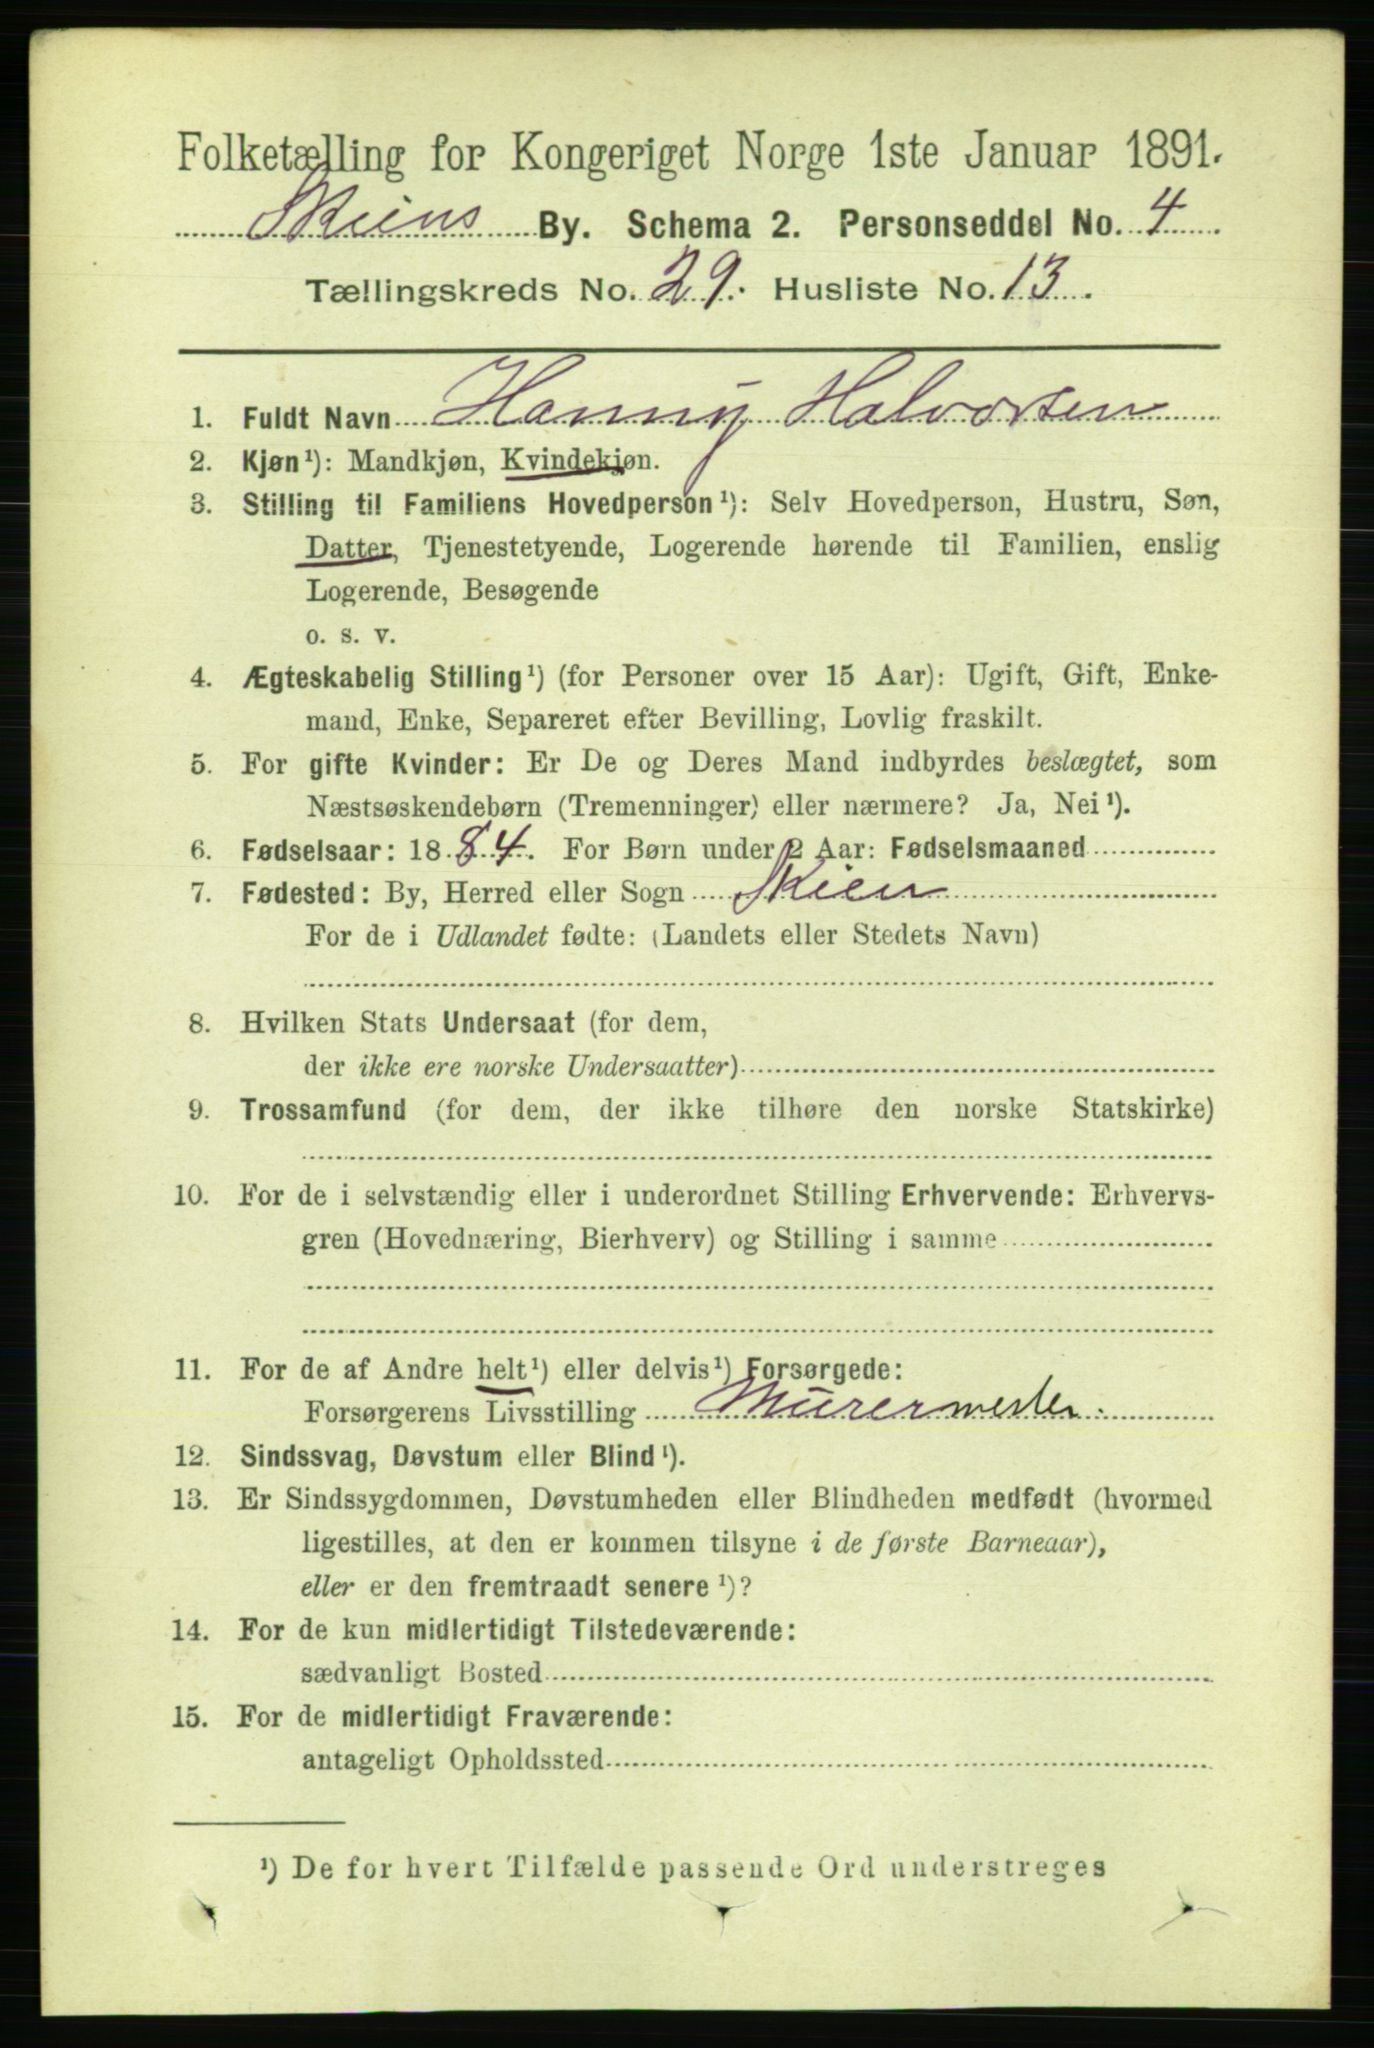 Folketælling for Kongeriget Norge 1ste Januar 1891.
Skiens By. Schema 2. Personseddel No. 4
Tællingskreds No. 29. Husliste No. 13.
1. Fuldt Navn Hanny Halvorsen
2. Kjøn¹): Mandkjøn, Kvindekjøn.
3. Stilling til Familiens Hovedperson¹): Selv Hovedperson, Hustru, Søn,
Datter, Tjenestetyende, Logerende hørende til Familien, enslig
Logerende, Besøgende
o. s. v.
4. Ægteskabelig Stilling¹) (for Personer over 15 Aar): Ugift, Gift, Enke-
mand, Enke, Separeret efter Bevilling, Lovlig fraskilt.
5. For gifte Kvinder: Er De og Deres Mand indbyrdes beslægtet, som
Næstsøskendebørn (Tremenninger) eller nærmere? Ja, Nei¹).
6. Fødselsaar: 1884. For Børn under 2 Aar: Fødselsmaaned
7. Fødested: By, Herred eller Sogn Skien
For de i Udlandet fødte: (Landets eller Stedets Navn)
8. Hvilken Stats Undersaat (for dem,
der ikke ere norske Undersaatter)
9. Trossamfund (for dem, der ikke tilhøre den norske Statskirke)
10. For de i selvstændig eller i underordnet Stilling Erhvervende: Erhvervs-
gren (Hovednæring, Bierhverv) og Stilling i samme
11. For de af Andre helt¹) eller delvis¹) Forsørgede:
Forsørgerens Livsstilling Murermester.
12. Sindssvag, Døvstum eller Blind¹).
13. Er Sindssygdommen, Døvstumheden eller Blindheden medfødt (hvormed
ligestilles, at den er kommen tilsyne i de første Barneaar),
eller er den fremtraadt senere¹)?
14. For de kun midlertidigt Tilstedeværende:
sædvanligt Bosted
15. For de midlertidigt Fraværende:
antageligt Opholdssted
¹) De for hvert Tilfælde passende Ord understreges